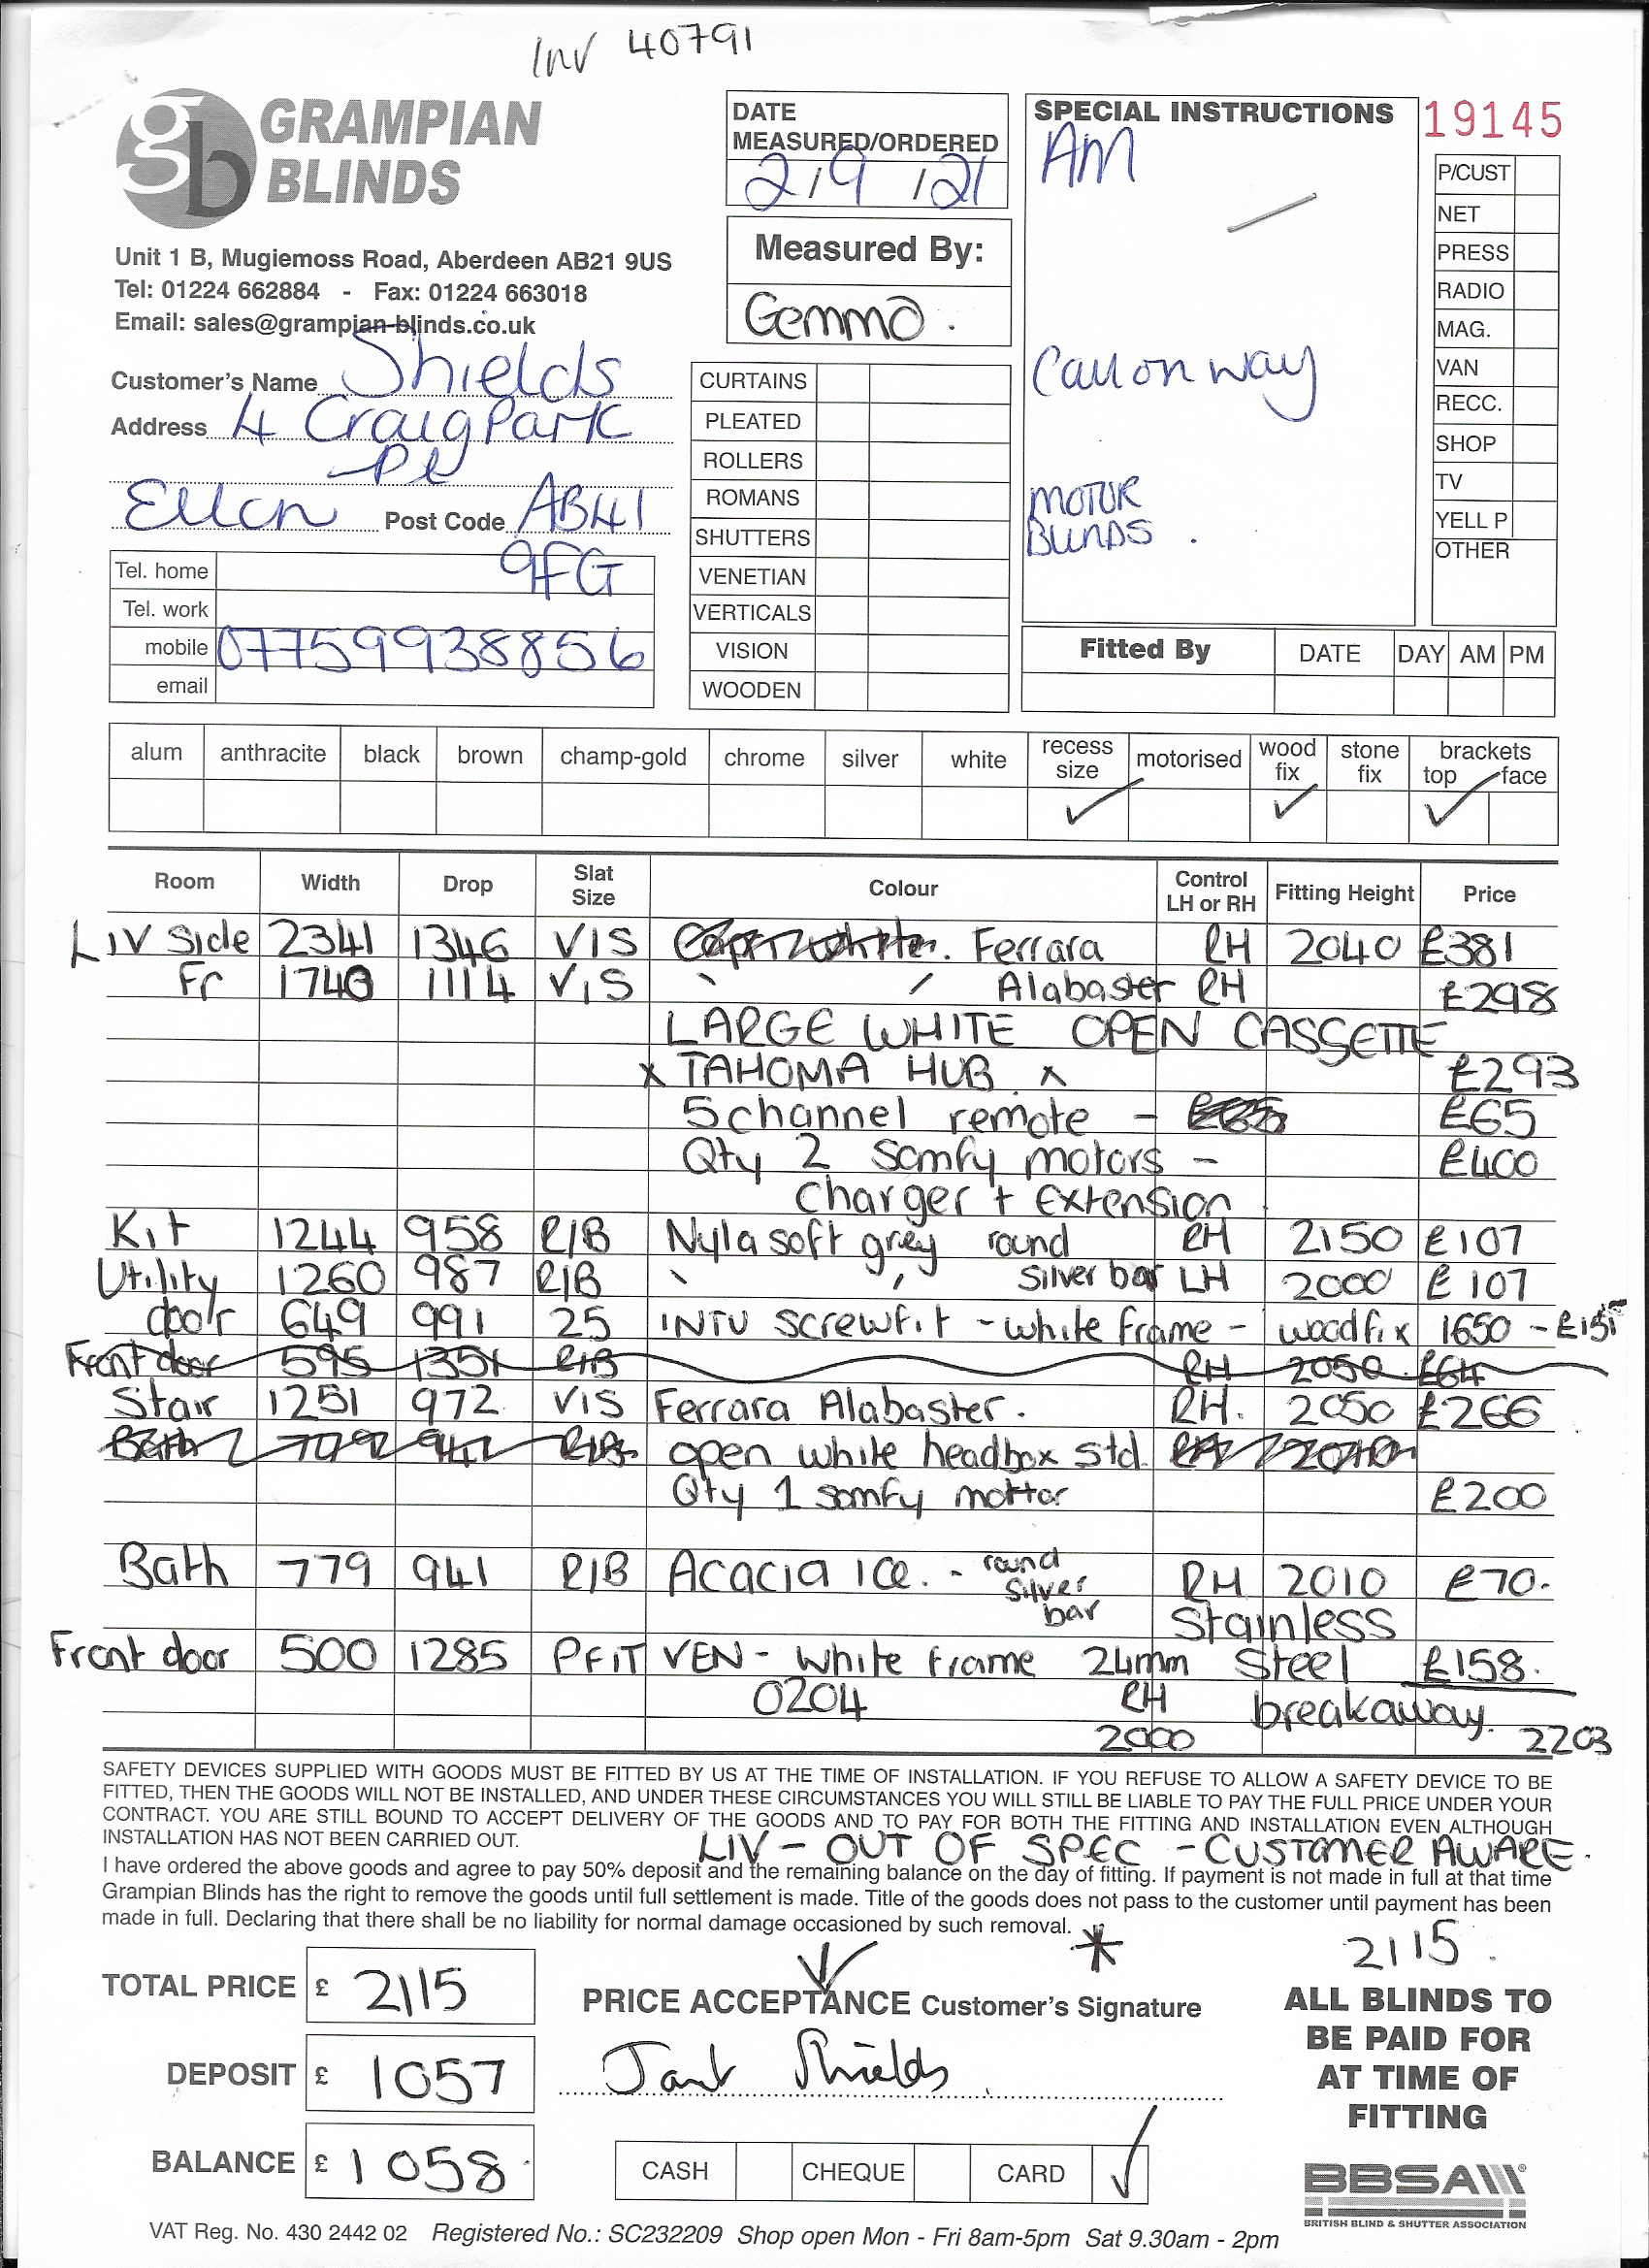 Inv 40791
GRAMPIAN
BLINDS
Unit 1 B, Mugiemoss Road, Aberdeen AB21 9US
Tel: 01224 662884 - Fax: 01224 663018
Email: sales@grampian-blinds.co.uk
Customer's Name Shields
Address 4 Craigpark
Pl
Ellon Post Code AB41
9FG
Tel. home
Tel. work
mobile 07759938856
email
DATE
MEASURED/ORDERED
2/9/21
Measured By:
Gemma.
CURTAINS
PLEATED
ROLLERS
ROMANS
SHUTTERS
VENETIAN
VERTICALS
VISION
WOODEN
SPECIAL INSTRUCTIONS
AM
Call on way
MOTOR
BLINDS.
19145
P/CUST
NET
PRESS
RADIO
MAG.
VAN
RECC.
SHOP
TV
YELL P
OTHER
Fitted By DATE DAY AM PM
alum anthracite black brown champ-gold chrome silver white recess size motorised wood fix stone fix brackets top face
Room Width Drop Slat Size Colour Control LH or RH Fitting Height Price
Liv Side 2341 1346 VIS Ferrara RH 2040 £381
Fr 1740 1114 VIS Alabaster RH £298
LARGE WHITE OPEN CASSETTE
x TAHOMA HUB x £293
5 channel remote - £65
Qty 2 Somfy motors - £400
Charger + Extension
Kit 1244 958 R/B Nyla soft grey round RH 2150 £107
Utility 1260 987 R/B Silver bar LH 2000 £107
door 649 991 25 INTU screwfit - white frame - woodfix 1650 - £151
Front door 595 1351 R/B RH 2050 £64
Stair 1251 972 VIS Ferrara Alabaster. RH. 2050 £266
Bath R/B open white headbox std.
Qty 1 somfy mottor £200
Bath 779 941 R/B Acacia Ice. - round silver bar RH 2010 £70.
Stainless
Front door 500 1285 PFIT VEN - White Frame 24mm Steel £158.
0204 RH breakaway.
2000 2203
SAFETY DEVICES SUPPLIED WITH GOODS MUST BE FITTED BY US AT THE TIME OF INSTALLATION. IF YOU REFUSE TO ALLOW A SAFETY DEVICE TO BE
FITTED, THEN THE GOODS WILL NOT BE INSTALLED, AND UNDER THESE CIRCUMSTANCES YOU WILL STILL BE LIABLE TO PAY THE FULL PRICE UNDER YOUR
CONTRACT. YOU ARE STILL BOUND TO ACCEPT DELIVERY OF THE GOODS AND TO PAY FOR BOTH THE FITTING AND INSTALLATION EVEN ALTHOUGH
INSTALLATION HAS NOT BEEN CARRIED OUT.
LIV - OUT OF SPEC - CUSTOMER AWARE.
I have ordered the above goods and agree to pay 50% deposit and the remaining balance on the day of fitting. If payment is not made in full at that time
Grampian Blinds has the right to remove the goods until full settlement is made. Title of the goods does not pass to the customer until payment has been
made in full. Declaring that there shall be no liability for normal damage occasioned by such removal.
*
2115.
TOTAL PRICE £ 2115
PRICE ACCEPTANCE Customer's Signature
DEPOSIT £ 1057
Shields
BALANCE £ 1058.
CASH CHEQUE CARD
ALL BLINDS TO
BE PAID FOR
AT TIME OF
FITTING
BBSA
BRITISH BLIND & SHUTTER ASSOCIATION
VAT Reg. No. 430 2442 02 Registered No.: SC232209 Shop open Mon - Fri 8am-5pm Sat 9.30am - 2pm